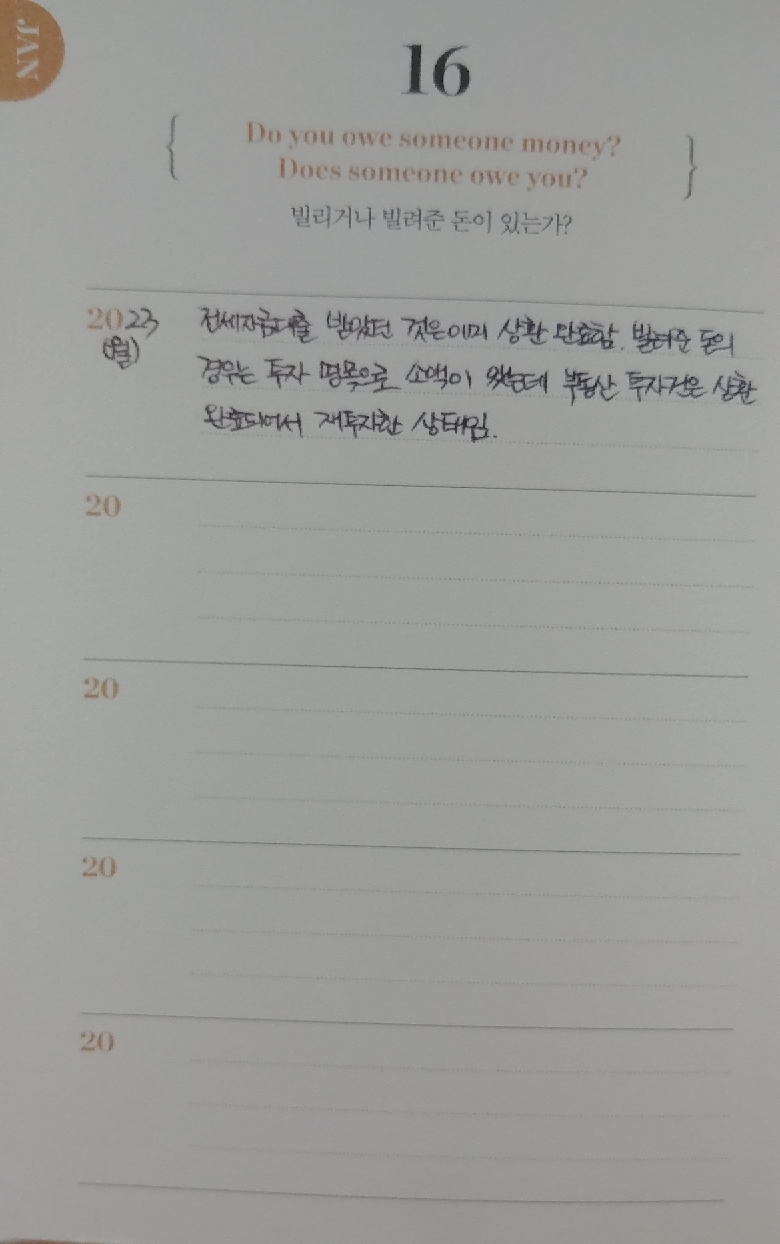 JAN
16
Do you owe someone money?
Does someone owe you?
빌리거나 빌려준 돈이 있는가?
2023 전세자금대출 받았던 것은 이미 상환 완료함. 빌려준 돈의
(월) 경우는 투자 명목으로 소액이 있는데 부동산 투자건은 상환
완료되어서 재투자한 상태임.
20
20
20
20